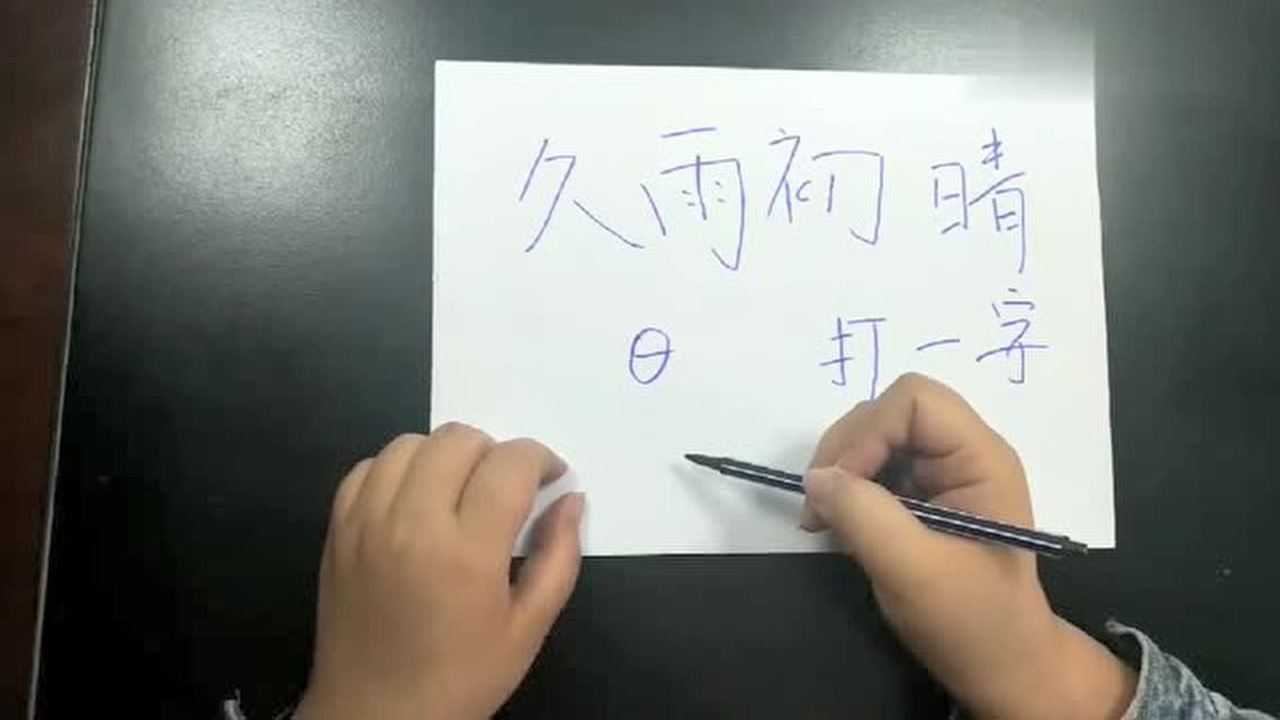 久雨初晴
θ 打一字